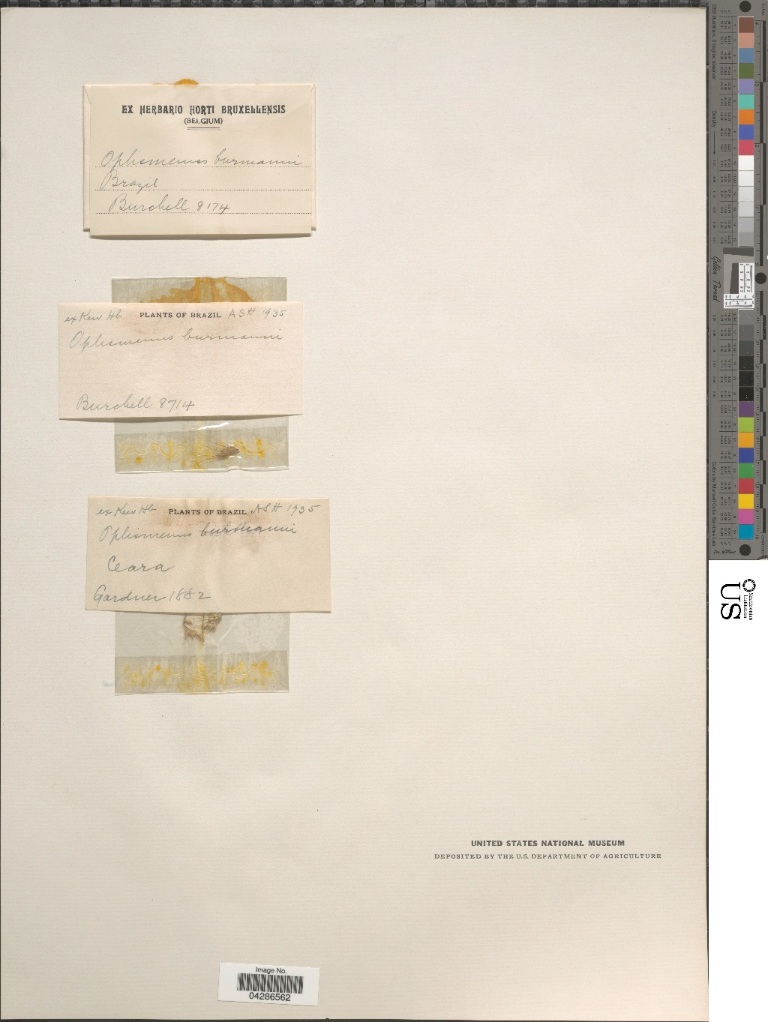 EX HERBARIO HORTI BRUXELLENSIS
(BELGIUM)
Oplismenus burmanni
Brazil
Burchell 8174
ex Kew Hb PLANTS OF BRAZIL ASH 1935
Oplismenus burmanni
Burchell 8714
ex Kew Hb PLANTS OF BRAZIL ASH 1935
Oplismenus burmanni
Ceara
Gardner 1882
UNITED STATES NATIONAL MUSEUM
DEPOSITED BY THE U.S. DEPARTMENT OF AGRICULTURE
Image No.
04286562
US